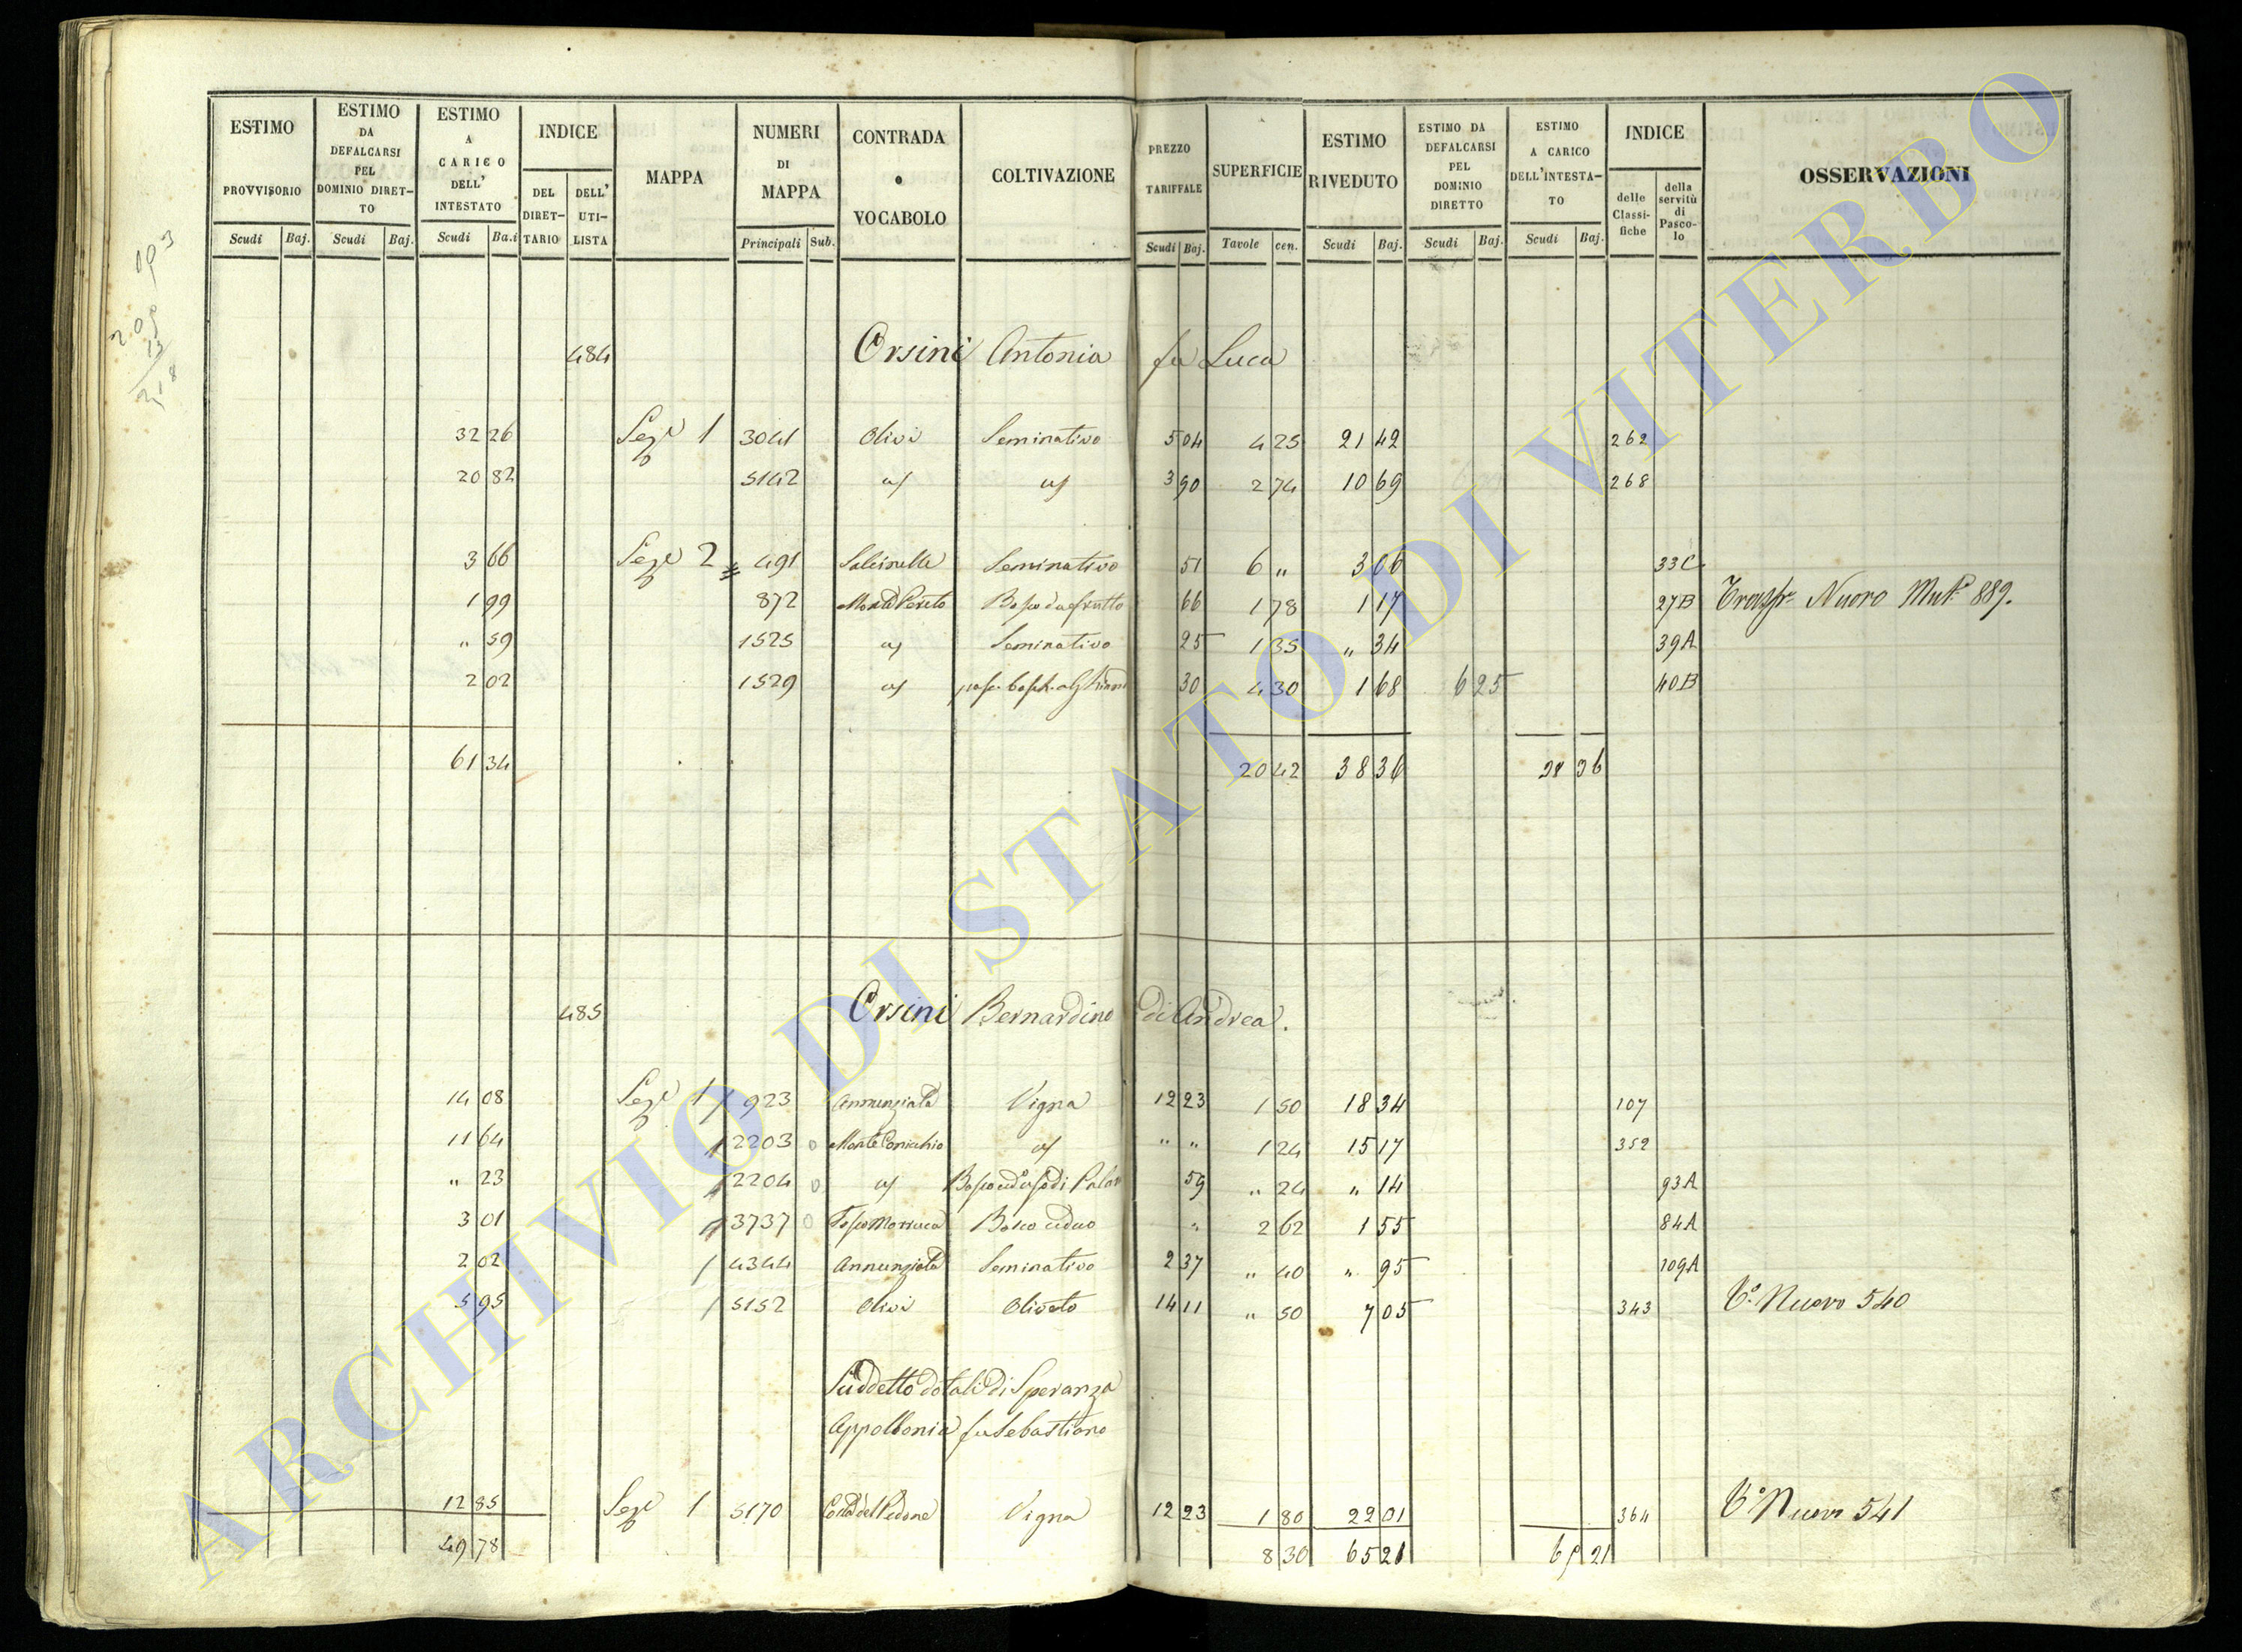 ESTIMO PROVVISORIO Scudi Baj.
ESTIMO DA DEFALCARSI PEL DOMINIO DIRETTO Scudi Baj.
ESTIMO A CARICO DELL' INTESTATO Scudi Ba.i
INDICE DEL DIRETTARIO DELL' UTILISTA
MAPPA
NUMERI DI MAPPA Principali Sub.
CONTRADA o VOCABOLO
COLTIVAZIONE
PREZZO TARIFFALE Scudi Baj.
SUPERFICIE Tavole cen.
ESTIMO RIVEDUTO Scudi Baj.
ESTIMO DA DEFALCARSI PEL DOMINIO DIRETTO Scudi Baj.
ESTIMO A CARICO DELL'INTESTATO Scudi Baj.
INDICE delle Classifiche della servitù di Pascolo
OSSERVAZIONI
484 Orsini Antonia fu Luca
32 26 Sez.e 1 3041 Olivi Seminativo 5 04 4 25 21 42 262
20 82 5142 3 90 2 74 10 69 268
3 66 Sez.e 2 491 Salcinelle Seminativo 51 6 " 3 06 33C
1 99 872 66 1 78 1 17 27B Nuovo 889.
" 59 1525 Seminativo 25 1 35 " 34 39A
2 02 1529 30 4 30 1 68 6 25 40B
61 34 20 42 38 36 38 36
485 Orsini Bernardino di Andrea.
14 08 Sez.e 1 923 Annunziata Vigna 12 23 1 50 18 34 107
11 64 2203 " " 1 24 15 17 352
" 23 2204 59 " 24 " 14 93A
3 01 3737 Bosco ceduo " 2 62 1 55 84A
2 02 4344 Annunziata Seminativo 2 37 " 40 " 95 109A
5 95 5152 Olivi Oliveto 14 11 " 50 7 05 343 Nuovo 540
Suddetto dotali di Speranza
Appollonia fu Sebastiano
12 85 Sez.e 1 5170 Vigna 12 23 1 80 22 01 364 Nuovo 541
49 78 8 30 65 21 65 21
ARCHIVIO DI STATO DI VITERBO